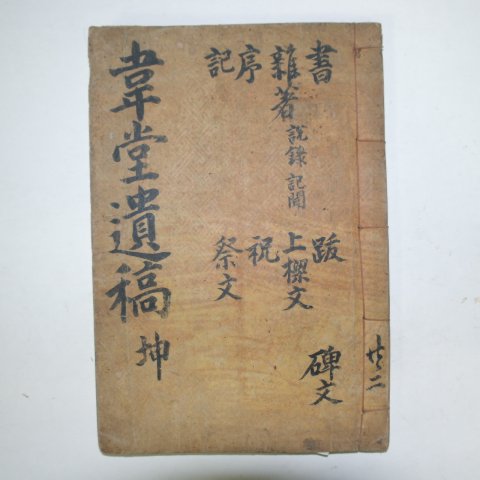 韋堂遺稿 坤
書
雜著 說錄 記聞
序
記
跋
上樑文
祝
祭文
碑文
共二